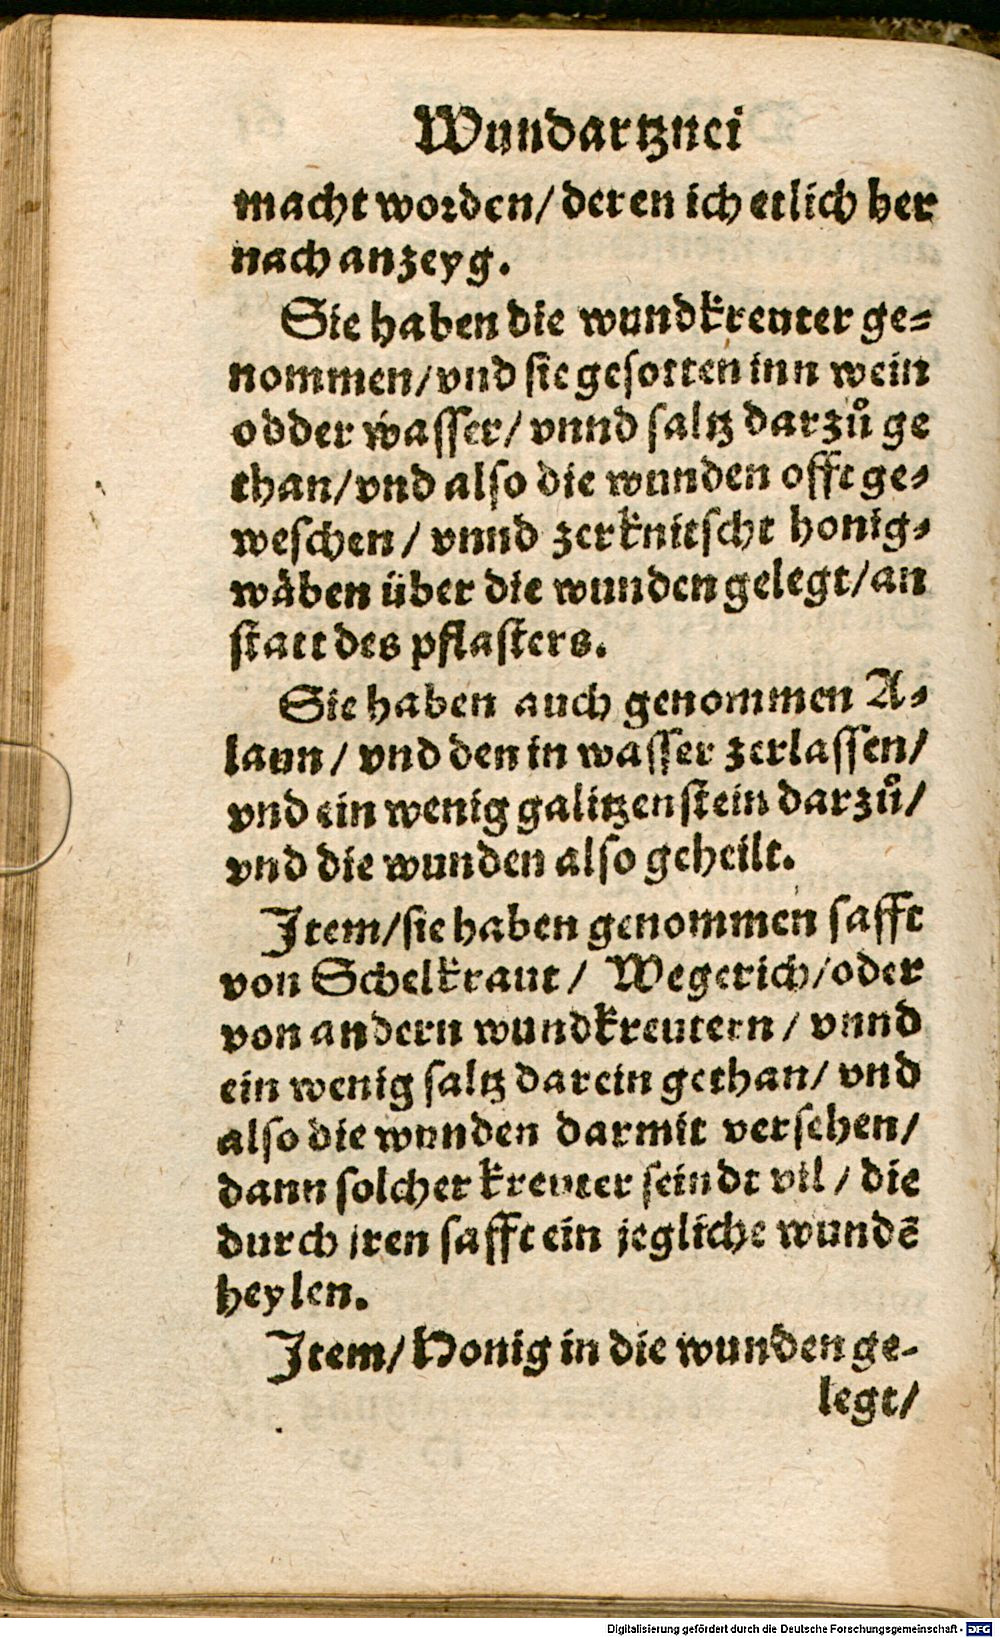 Wundartznei
macht worden/ deren ich etlich her
nach anzeyg.
Sie haben die wundkreuter ge⸗
nommen/ vnd sie gesotten inn wein
odder wasser/ vnnd saltz darzuͦ ge
than/ vnd also die wunden offt ge⸗
weschen/ vnnd zerknitscht honig⸗
wäben über die wunden gelegt/ an
statt des pflasters.
Sie haben auch genommen A⸗
laun/ vnd den in wasser zerlassen/
vnd ein wenig galitzenstein darzuͦ/
vnd die wunden also geheilt.
Item/ sie haben genommen safft
von Schelkraut/ Wegerich/ oder
von andern wundkreutern/ vnnd
ein wenig saltz darein gethan/ vnd
also die wunden darmit versehen/
dann solcher kreuter seindt vil/ die
durch jren safft ein jegliche wundẽ
heylen.
Item/ Honig in die wunden ge-
legt/
Digitalisierung gefördert durch die Deutsche Forschungsgemeinschaft - DFG